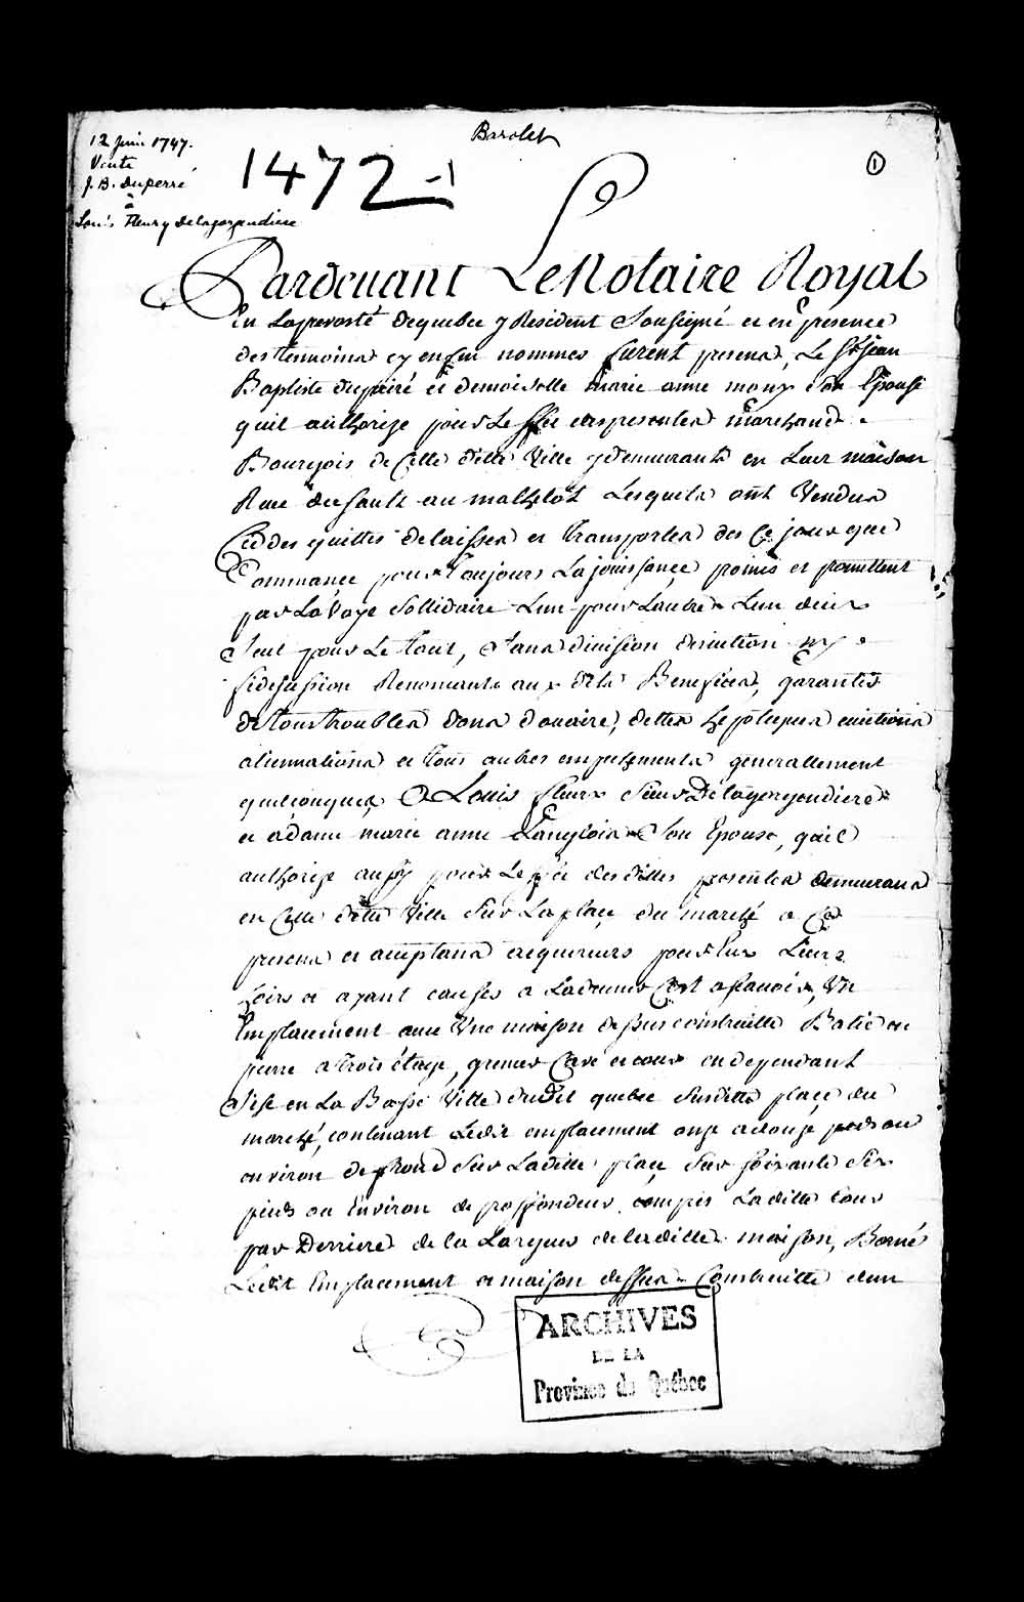 Barolet
1
12 Juin 1747.
Vente
J. B. Duperré
à
Louis Fleury Delagorgendiere
1472-1
Pardevant Le Notaire Royal
En La prevosté dequebec y Resident Soussigné et en presence
des temoins cy en fin nommés furent presens, Le Sr Jean
Baptiste duperré et demoiselle marie anne mony Son Epouse
quil authorize pour Leffet des presentes marchand
Bourgois de Cette ditte Ville y demeurants en Leur maison
Rue du Sault au mathelot Lesquels ont Vendus
Ceddes quittes delaisses et transportes des Ce jour que
Commance pour toujours La jouissance, promis et promettent
par La Voye Sollidaire Lun pour Lautre Lun deux
Seul pour Le tout, Sans division discution ny
fidejussion Renomants aux dits Benefices, garantir
de tous troubles dons douaire, dettes hypoteques evictions
aliennations et tous autres empechements generallement
quelconques, A Louis fleury Sieur Delagorgendiere
et a dame marie anne Langlois Son Epouse, quil
authorize aussy pour Leffet des dittes presentes demeurans
en Cette ditte Ville Sur La place du marché a Ce
presens et acceptans acquereurs pour Eux Leurs
hoirs et ayant causes a Ladvenir Cest asçavoir, Un
Emplacement avec Une maison dessus construitte Batie en
pierre a trois étage, grenier Cave et cour en dependant
Sise en La Basse Ville dudit quebec Susditte place du
marché, contenant Ledit emplacement onze a douze pieds ou
environ de front Sur Laditte place Sur soixante Six
pieds ou Environ de proffondeur compris Laditte Cour
par Derriere de la Largeur de laditte maison, Borné
Ledit Emplacement et maison dessus Construitte dun
ARCHIVES
DE LA
Province de Québec